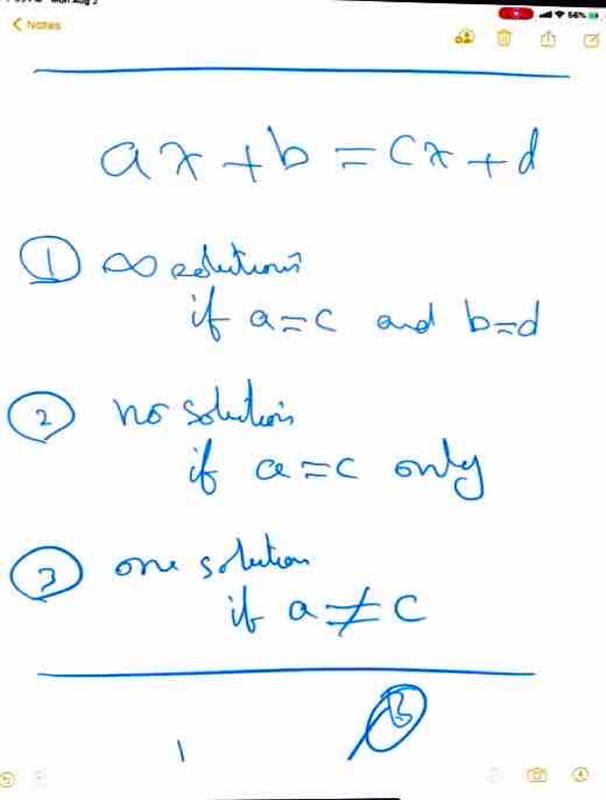 Notes
56%
ax + b = cx + d
① ∞ solutions
if a = c and b = d
② no solutions
if a = c only
③ one solution
if a ≠ c